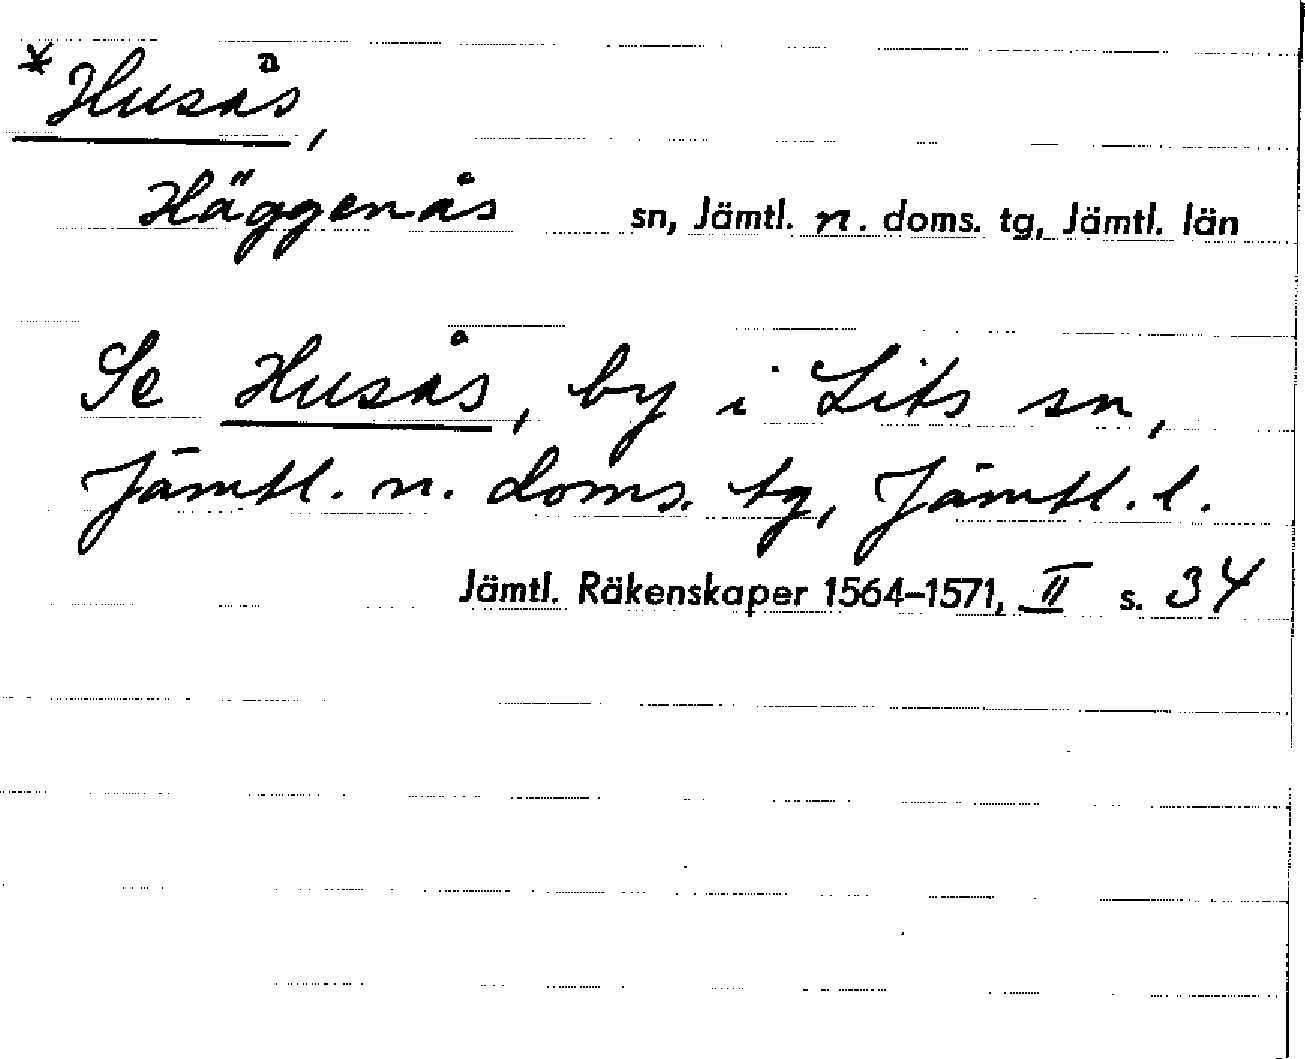 *Huså̈s,
Häggenås sn, Jämtl. n. doms. tg, Jämtl. län
Se Husås, by i Lits sn,
Jämtl. n. doms. tg, Jämtl. l.
Jämtl. Räkenskaper 1564–1571, II s. 34